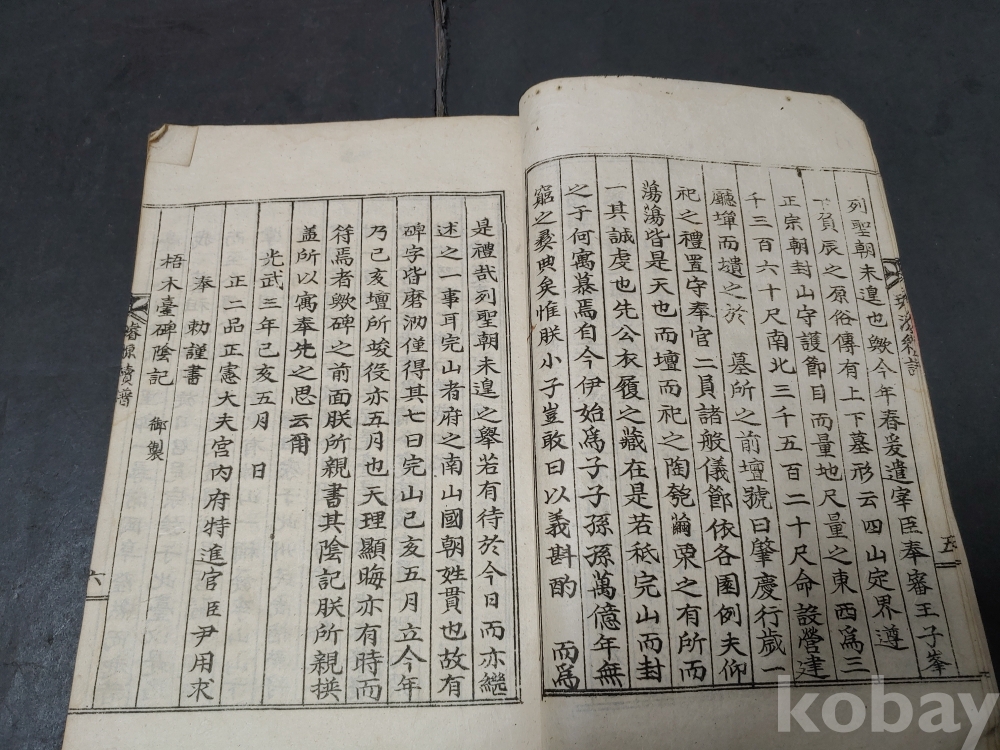 列聖朝未遑也歟今年春爰遣宰臣奉審王子峯
下負辰之原俗傳有上下墓形云四山定界遵
正宗朝封山守護節目而量地尺量之東西爲三
千三百六十尺南北三千五百二十尺命設營建
廳墠而墳之於 墓所之前壇號曰肇慶行歲一
祀之禮置守奉官二員諸般儀節依各園例夫仰
蕩蕩皆是天也而壇而祀之陶匏繭栗之有所而
一其誠虔也先公衣履之藏在是若秪完山而封
之于何寓慕焉自今伊始爲子子孫孫萬億年無
窮之彝典矣惟朕小子豈敢曰以義斟酌 而爲
五
是禮哉列聖朝未遑之擧若有待於今日而亦繼
述之一事耳完山者府之南山國朝姓貫也故有
碑字皆磨泐僅得其七曰完山己亥五月立今年
乃己亥壇所竣役亦五月也天理顯晦亦有時而
符焉者歟碑之前面朕所親書其陰記朕所親撰
盖所以寓奉先之思云爾
光武三年己亥五月 日
正二品正憲大夫宮內府特進官臣尹用求
奉 勅謹書
梧木臺碑陰記 御製
璿源續譜
六
kobay